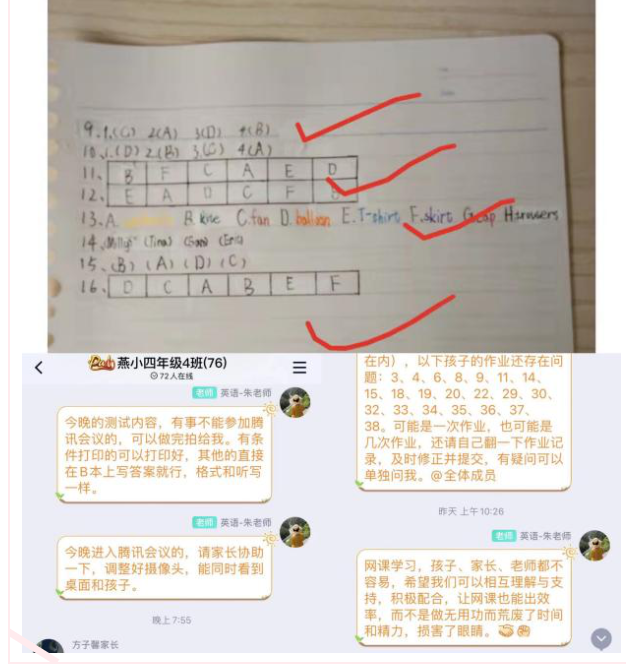 9.1.(C) 2(A) 3(D) 4(B)
10.1.(D) 2(B) 3(C) 4(A)
11、 B F C A E D
12、 E A D C F B
13.A. B.kite C.fan D.balloon E.T-shirt F.skirt G.cap H.trousers
14. (Tina) (Sam) (Eric)
15、(B) (A) (D) (C)
16、 D C A B E F
燕小四年级4班(76)
72人在线
老师 英语-朱老师
今晚的测试内容，有事不能参加腾
讯会议的，可以做完拍给我。有条
件打印的可以打印好，其他的直接
在B本上写答案就行，格式和听写
一样。
老师 英语-朱老师
今晚进入腾讯会议的，请家长协助
一下，调整好摄像头，能同时看到
桌面和孩子。
晚上7:55
方子馨家长
在内），以下孩子的作业还存在问
题：3、4、6、8、9、11、14、
15、18、19、20、22、29、30、
32、33、34、35、36、37、
38。可能是一次作业，也可能是
几次作业，还请自己翻一下作业记
录，及时修正并提交，有疑问可以
单独问我。@全体成员
昨天 上午10:26
老师 英语-朱老师
网课学习，孩子、家长、老师都不
容易，希望我们可以相互理解与支
持，积极配合，让网课也能出效
率，而不是做无用功而荒废了时间
和精力，损害了眼睛。